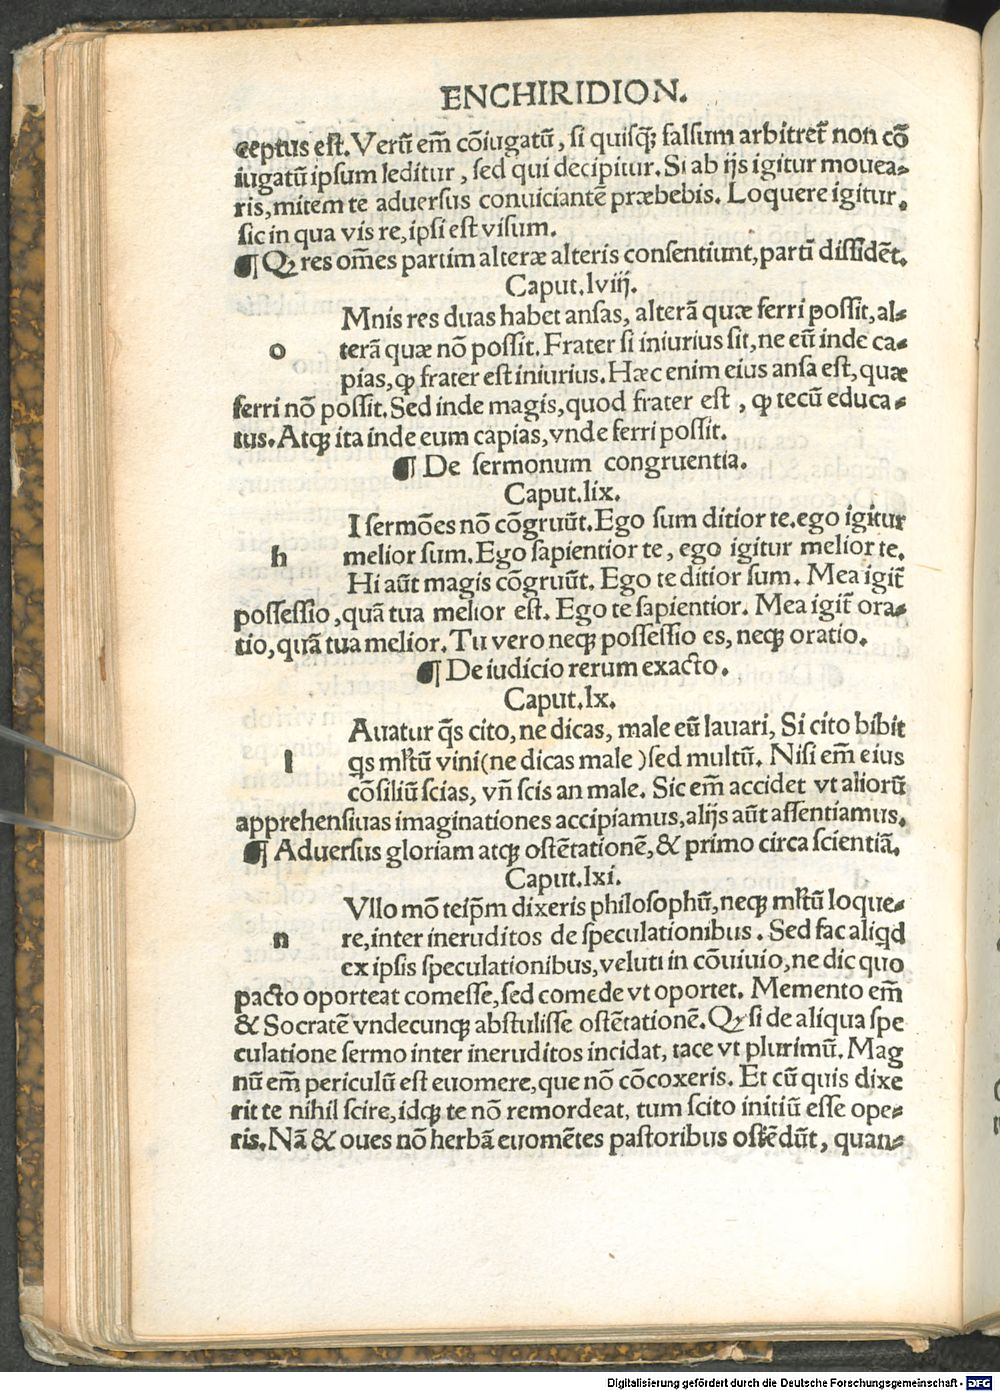 ENCHIRIDION.
ceptus est. Verũ em̃ cõiugatũ, si quisq̃; falsum arbitret̃ non cõ
iugatũ ipsum leditur, sed qui decipitur. Si ab ijs igitur mouea-
ris, mitem te aduersus conuiciantẽ præbebis. Loquere igitur.
sic in qua vis re, ipsi est visum.
¶ Qꝫ res om̃es partim alteræ alteris consentiunt, partĩ dissidẽt.
Caput.lviij.
Mnis res duas habet ansas, alterã quæ ferri possit, al-
o terã quæ nõ possit. Frater si iniurius sit, ne eũ inde ca-
pias, ꝙ frater est iniurius. Hæc enim eius ansa est, quæ
ferri nõ possit. Sed inde magis, quod frater est, ꝙ tecũ educa-
tus. Atqꝫ ita inde eum capias, vnde ferri possit.
¶ De sermonum congruentia.
Caput.lix.
I sermões nõ cõgruũt. Ego sum ditior te. ego igitur
h melior sum. Ego sapientior te, ego igitur melior te.
Hi aũt magis cõgruũt. Ego te ditior sum. Mea igit̃
possessio, quã tua melior est. Ego te sapientior. Mea igit̃ ora-
tio, quã tua melior. Tu vero neqꝫ possessio es, neqꝫ oratio.
¶ De iudicio rerum exacto.
Caput.lx.
Auatur q̃s cito, ne dicas, male eũ lauari, Si cito bibit
l qs mĺtũ vini (ne dicas male) sed multũ. Nisi em̃ eius
cõsiliũ scias, vñ scis an male. Sic em̃ accidet vt aliorũ
apprehensiuas imaginationes accipiamus, alijs aũt assentiamus.
¶ Aduersus gloriam atqꝫ ostẽtationẽ, & primo circa scientiã.
Caput.lxi.
Vllo mõ teip̃m dixeris philosophũ, neqꝫ mĺtũ loque-
n re, inter ineruditos de speculationibus. Sed fac aliqd
ex ipsis speculationibus, veluti in cõuiuio, ne dic quo
pacto oporteat comesse, sed comede vt oportet. Memento em̃
& Socratẽ vndecunqꝫ abstulisse ostẽtationẽ. Qꝫ si de aliqua spe
culatione sermo inter ineruditos incidat, tace vt plurimũ. Mag
nũ em̃ periculũ est euomere, que nõ cõcoxeris. Et cũ quis dixe
rit te nihil scire, idqꝫ te nõ remordeat, tum scito initiũ esse ope-
ris. Nã & oues nõ herbã euomẽtes pastoribus ostẽdũt, quan-
Digitalisierung gefördert durch die Deutsche Forschungsgemeinschaft - DFG